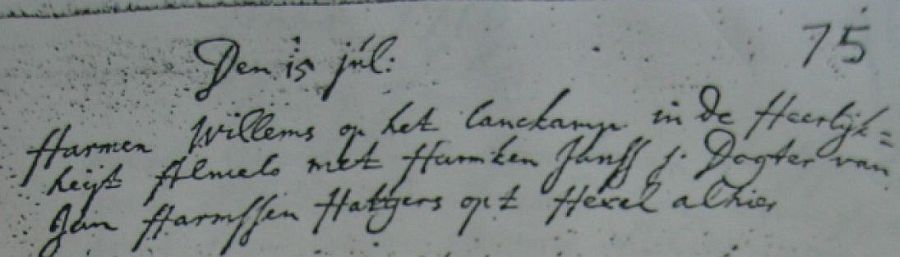 75
Den 15 júl:
Harmen Willems op het Lanckamp in de Heerlijk=
heijt Almelo met Harmken Janss j. Dogter van
Jan Harmssen Hatgers op t Hexel alhier